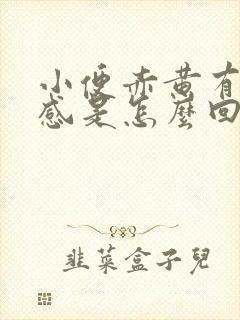 小便赤黄有
感是怎麼回
韭菜盒子兒